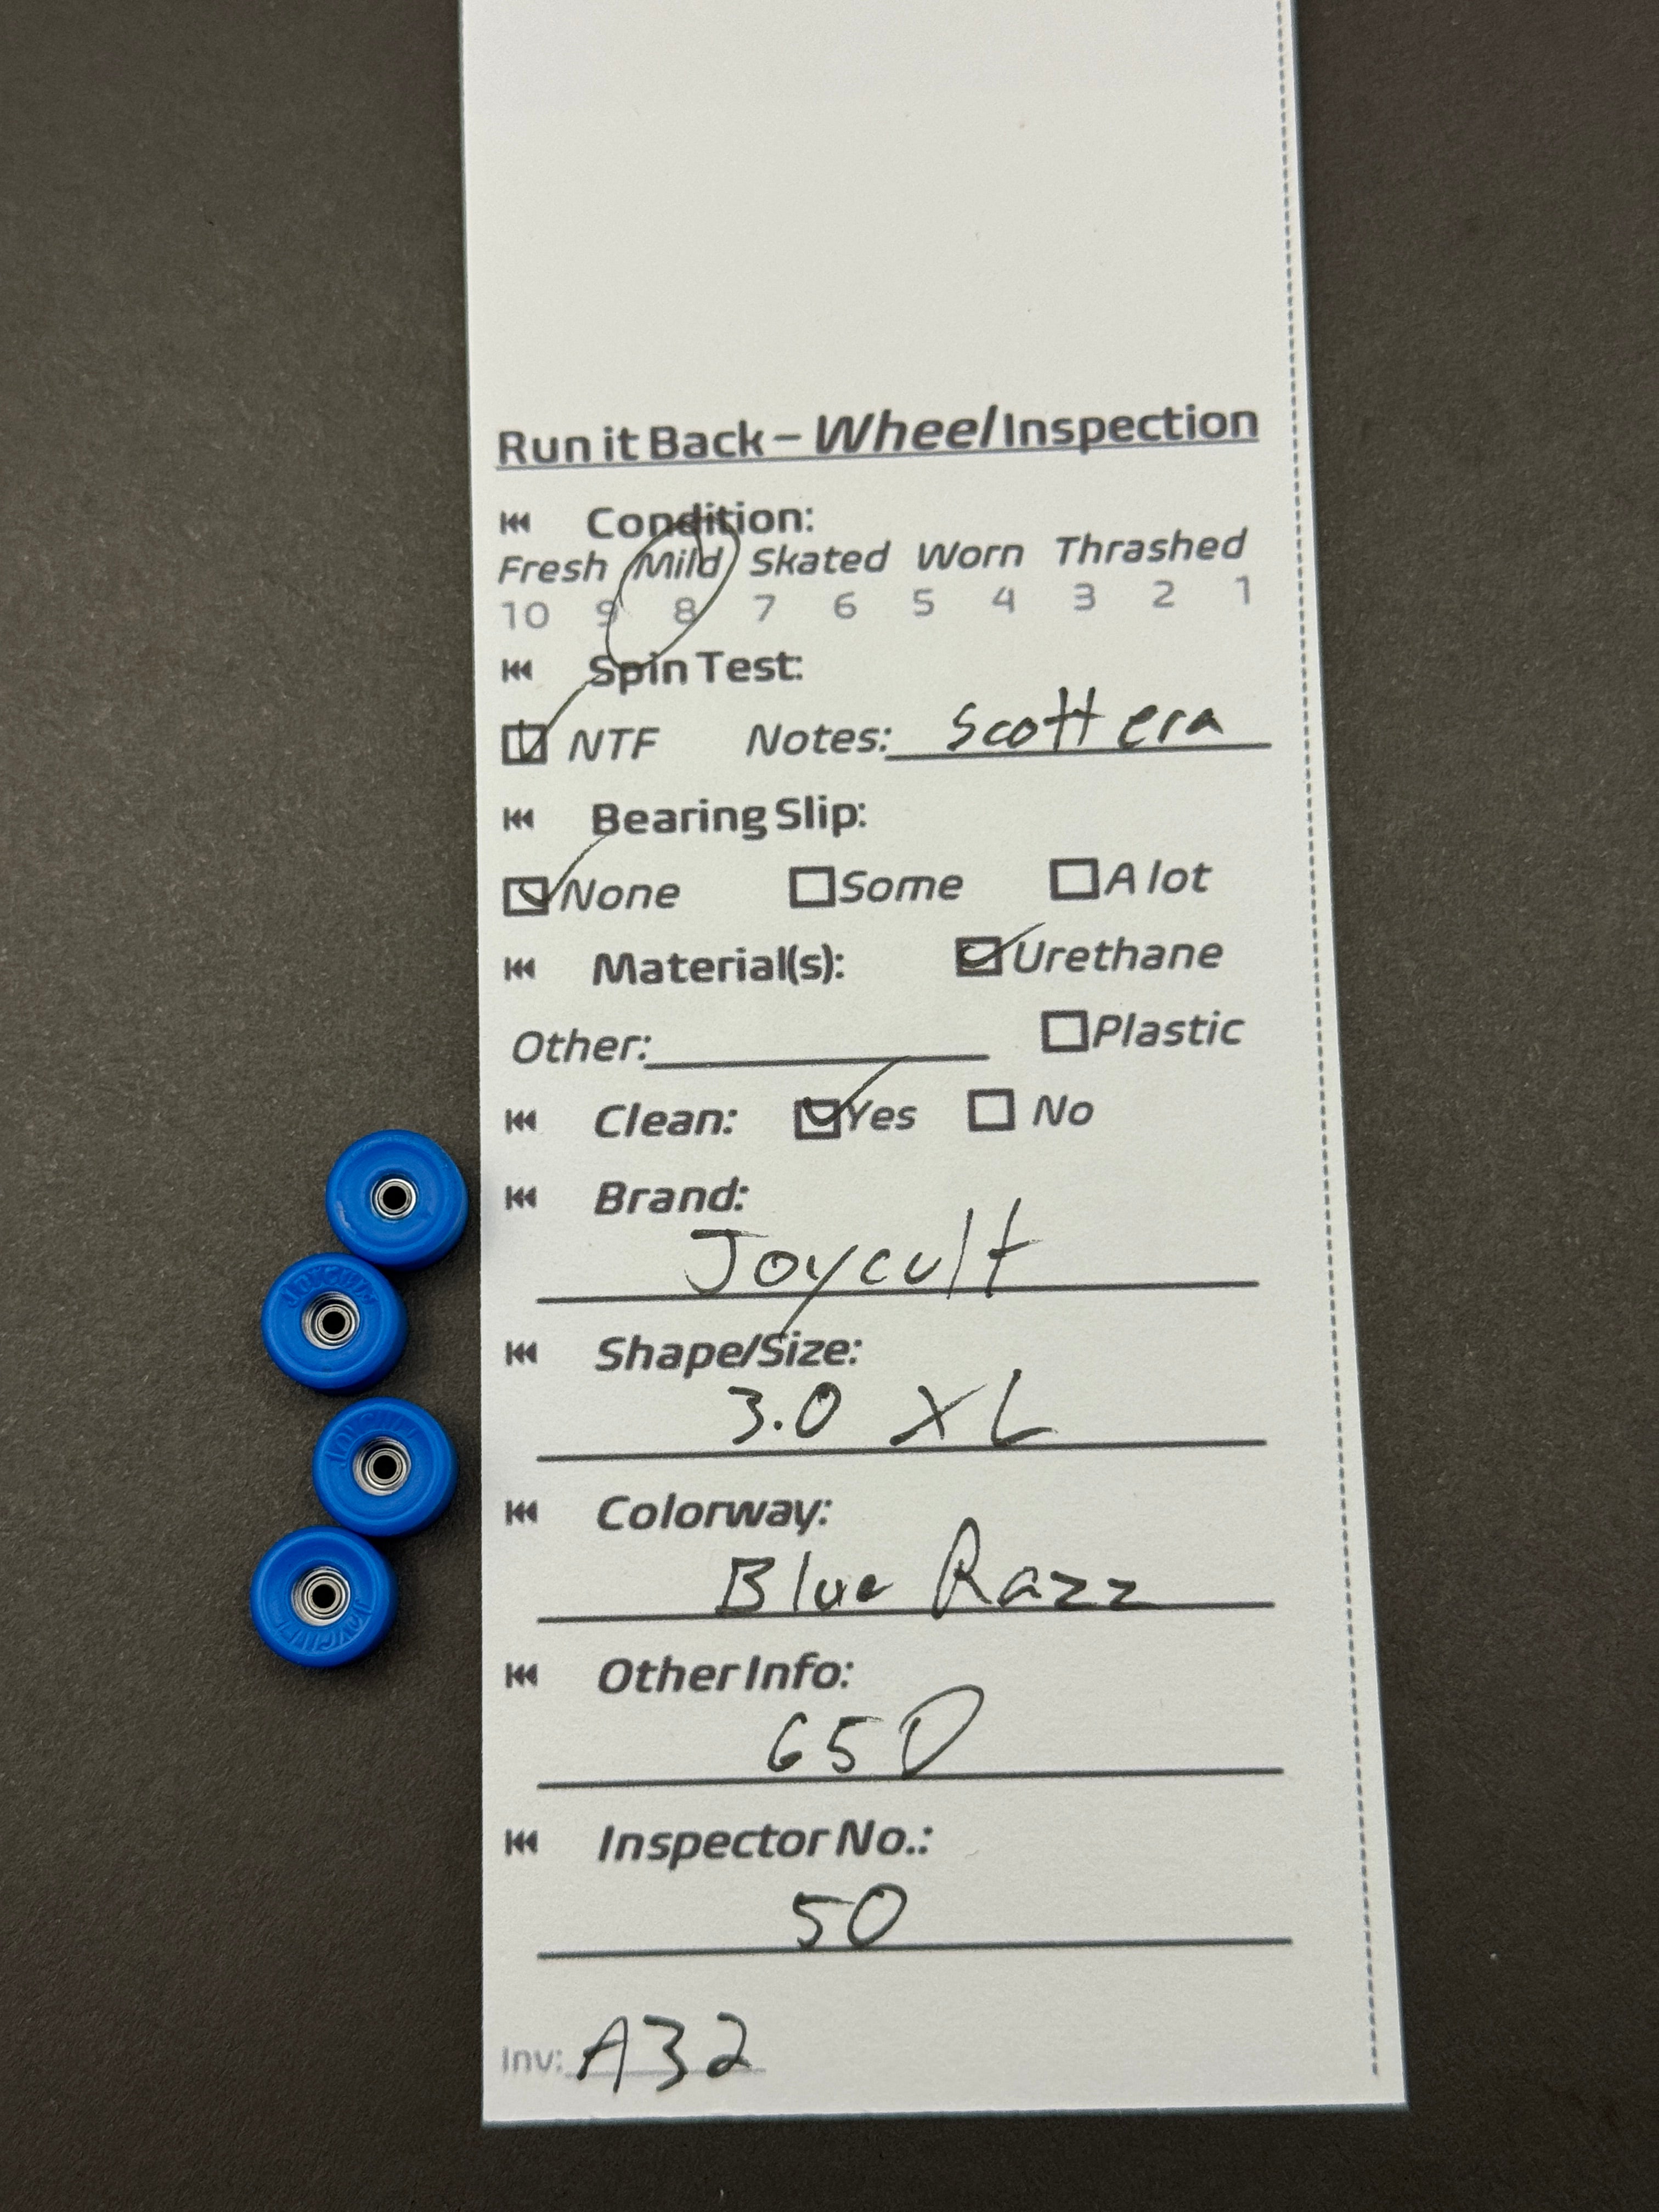 Run it Back – Wheel Inspection
Condition:
Fresh Mild Skated Worn Thrashed
10 9 8 7 6 5 4 3 2 1
Spin Test:
NTF Notes: Scott era
Bearing Slip:
None Some A lot
Material(s): Urethane
Other: Plastic
Clean: Yes No
Brand:
Joycult
Shape/Size:
3.0 XL
Colorway:
Blue Razz
Other Info:
65D
Inspector No.:
50
Inv: A32
Joycult
Joycult
Joycult